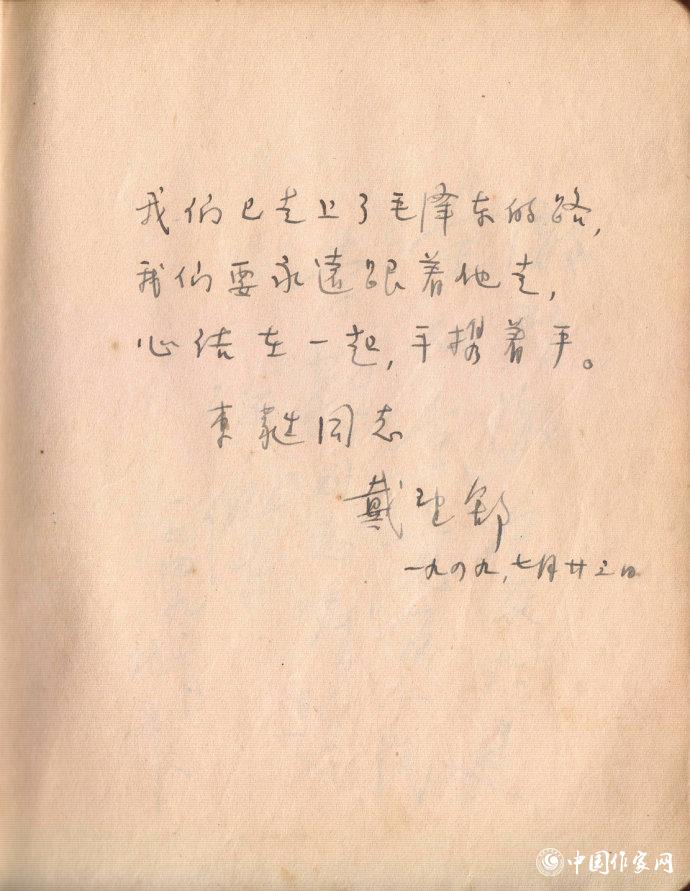 我们已走上了毛泽东的路,
我们要永遠跟着他走,
心结在一起,手携着手。
同志
戴望舒
一九四九,七月廿三日
中国作家网